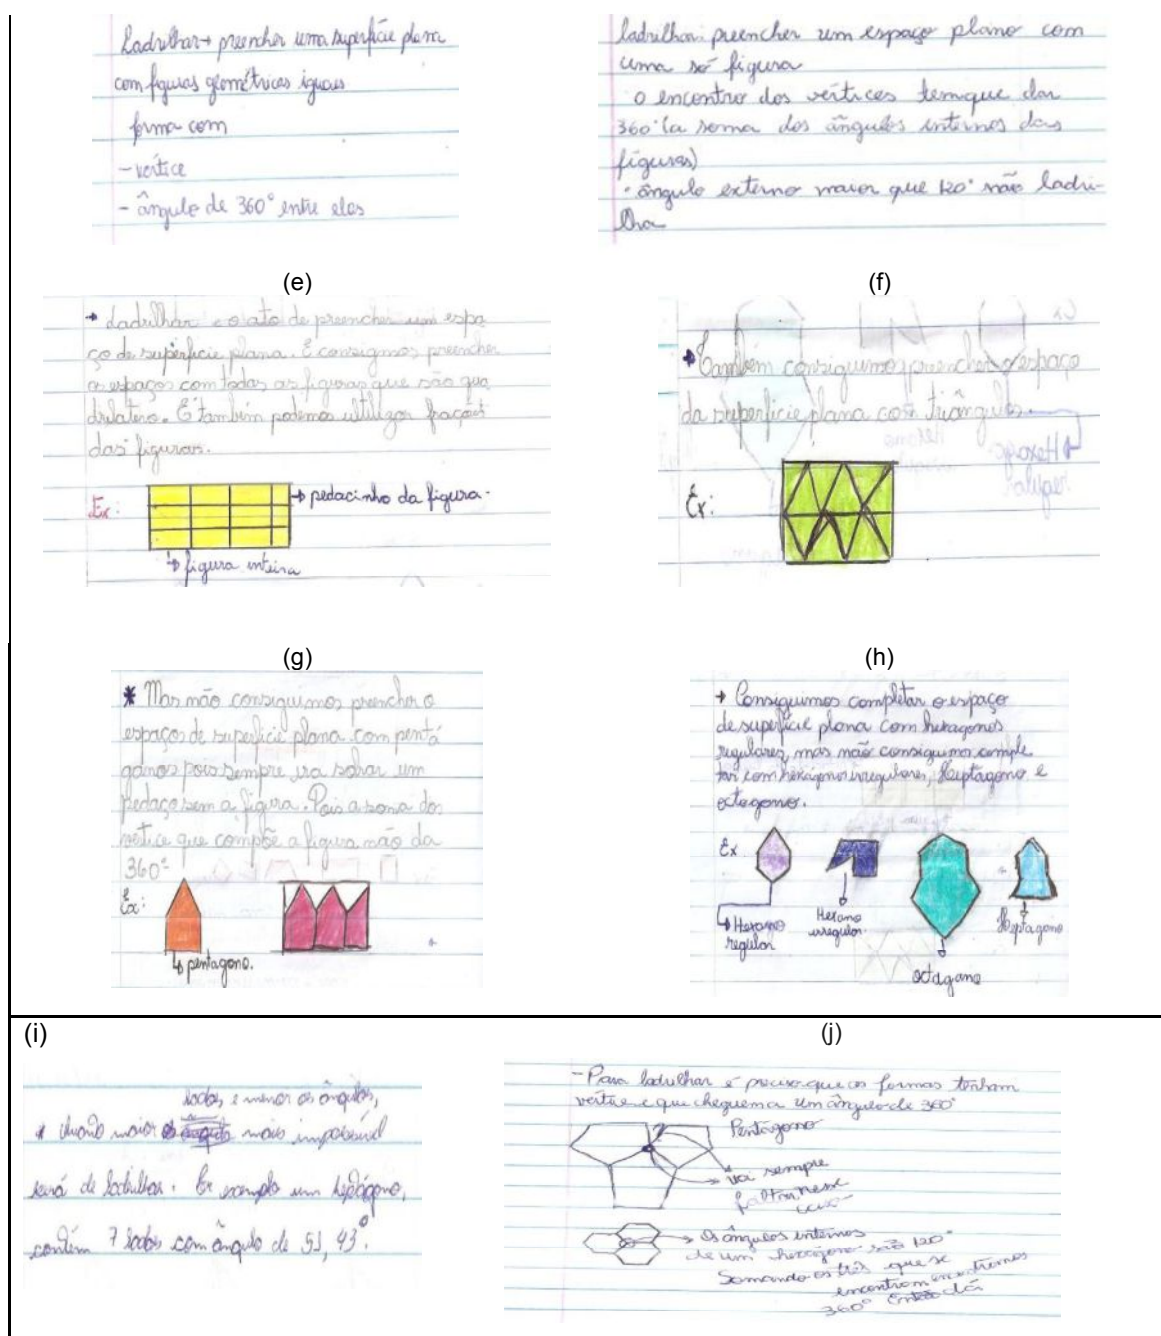 Ladrilhar → preencher uma superfície plana
com figuras geométricas iguais
forma com
- vértice
- ângulo de 360° entre elas
ladrilhar: preencher um espaço plano com
uma só figura
o encontro dos vértices tem que dar
360° (a soma dos ângulos internos das
figuras)
• ângulo externo maior que 120° não ladri-
lha
(e)
(f)
Ladrilhar e o ato de preencher um espa
ço de superfície plana. E consigmos preencher
os espaços com todas as figuras que são qua
drilatero. E também podemos utilizar frações
das figuras.
Ex:
→ pedacinho da figura.
figura inteira
Também conseguimos preencher o espaço
da superfície plana com triângulos.
Hexago
regular
Ex:
(g)
(h)
* Mas não conseguimos preencher o
espaços de superfície plana com pentá
gonos pois sempre ira sobrar um
pedaço sem a figura. Pois a soma dos
vértice que compõe a figura não da
360°
Ex:
pentagono.
→ Conseguimos completar o espaço
de superfície plana com hexagonos
regulares, mas não conseguimos comple
tar com hexágonos irregulares, Heptágono e
octagono.
Ex
Hexano
regular
Hexano
irregular
octagano
Heptagono
(i)
(j)
lados, e menor os ângulos,
* quanto maior mais impossível
será de ladrilhar. Por exemplo um heptágono,
contém 7 lados com ângulo de 51,43°.
- Para ladrilhar é preciso que as formas tenham
vértice e que cheguem a um ângulo de 360°
Pentágono
→ vai sempre
faltar nesse
→ Os ângulos internos
de um hexágono são 120°
Somando os três que se
encontram encontramos
360° Então dá